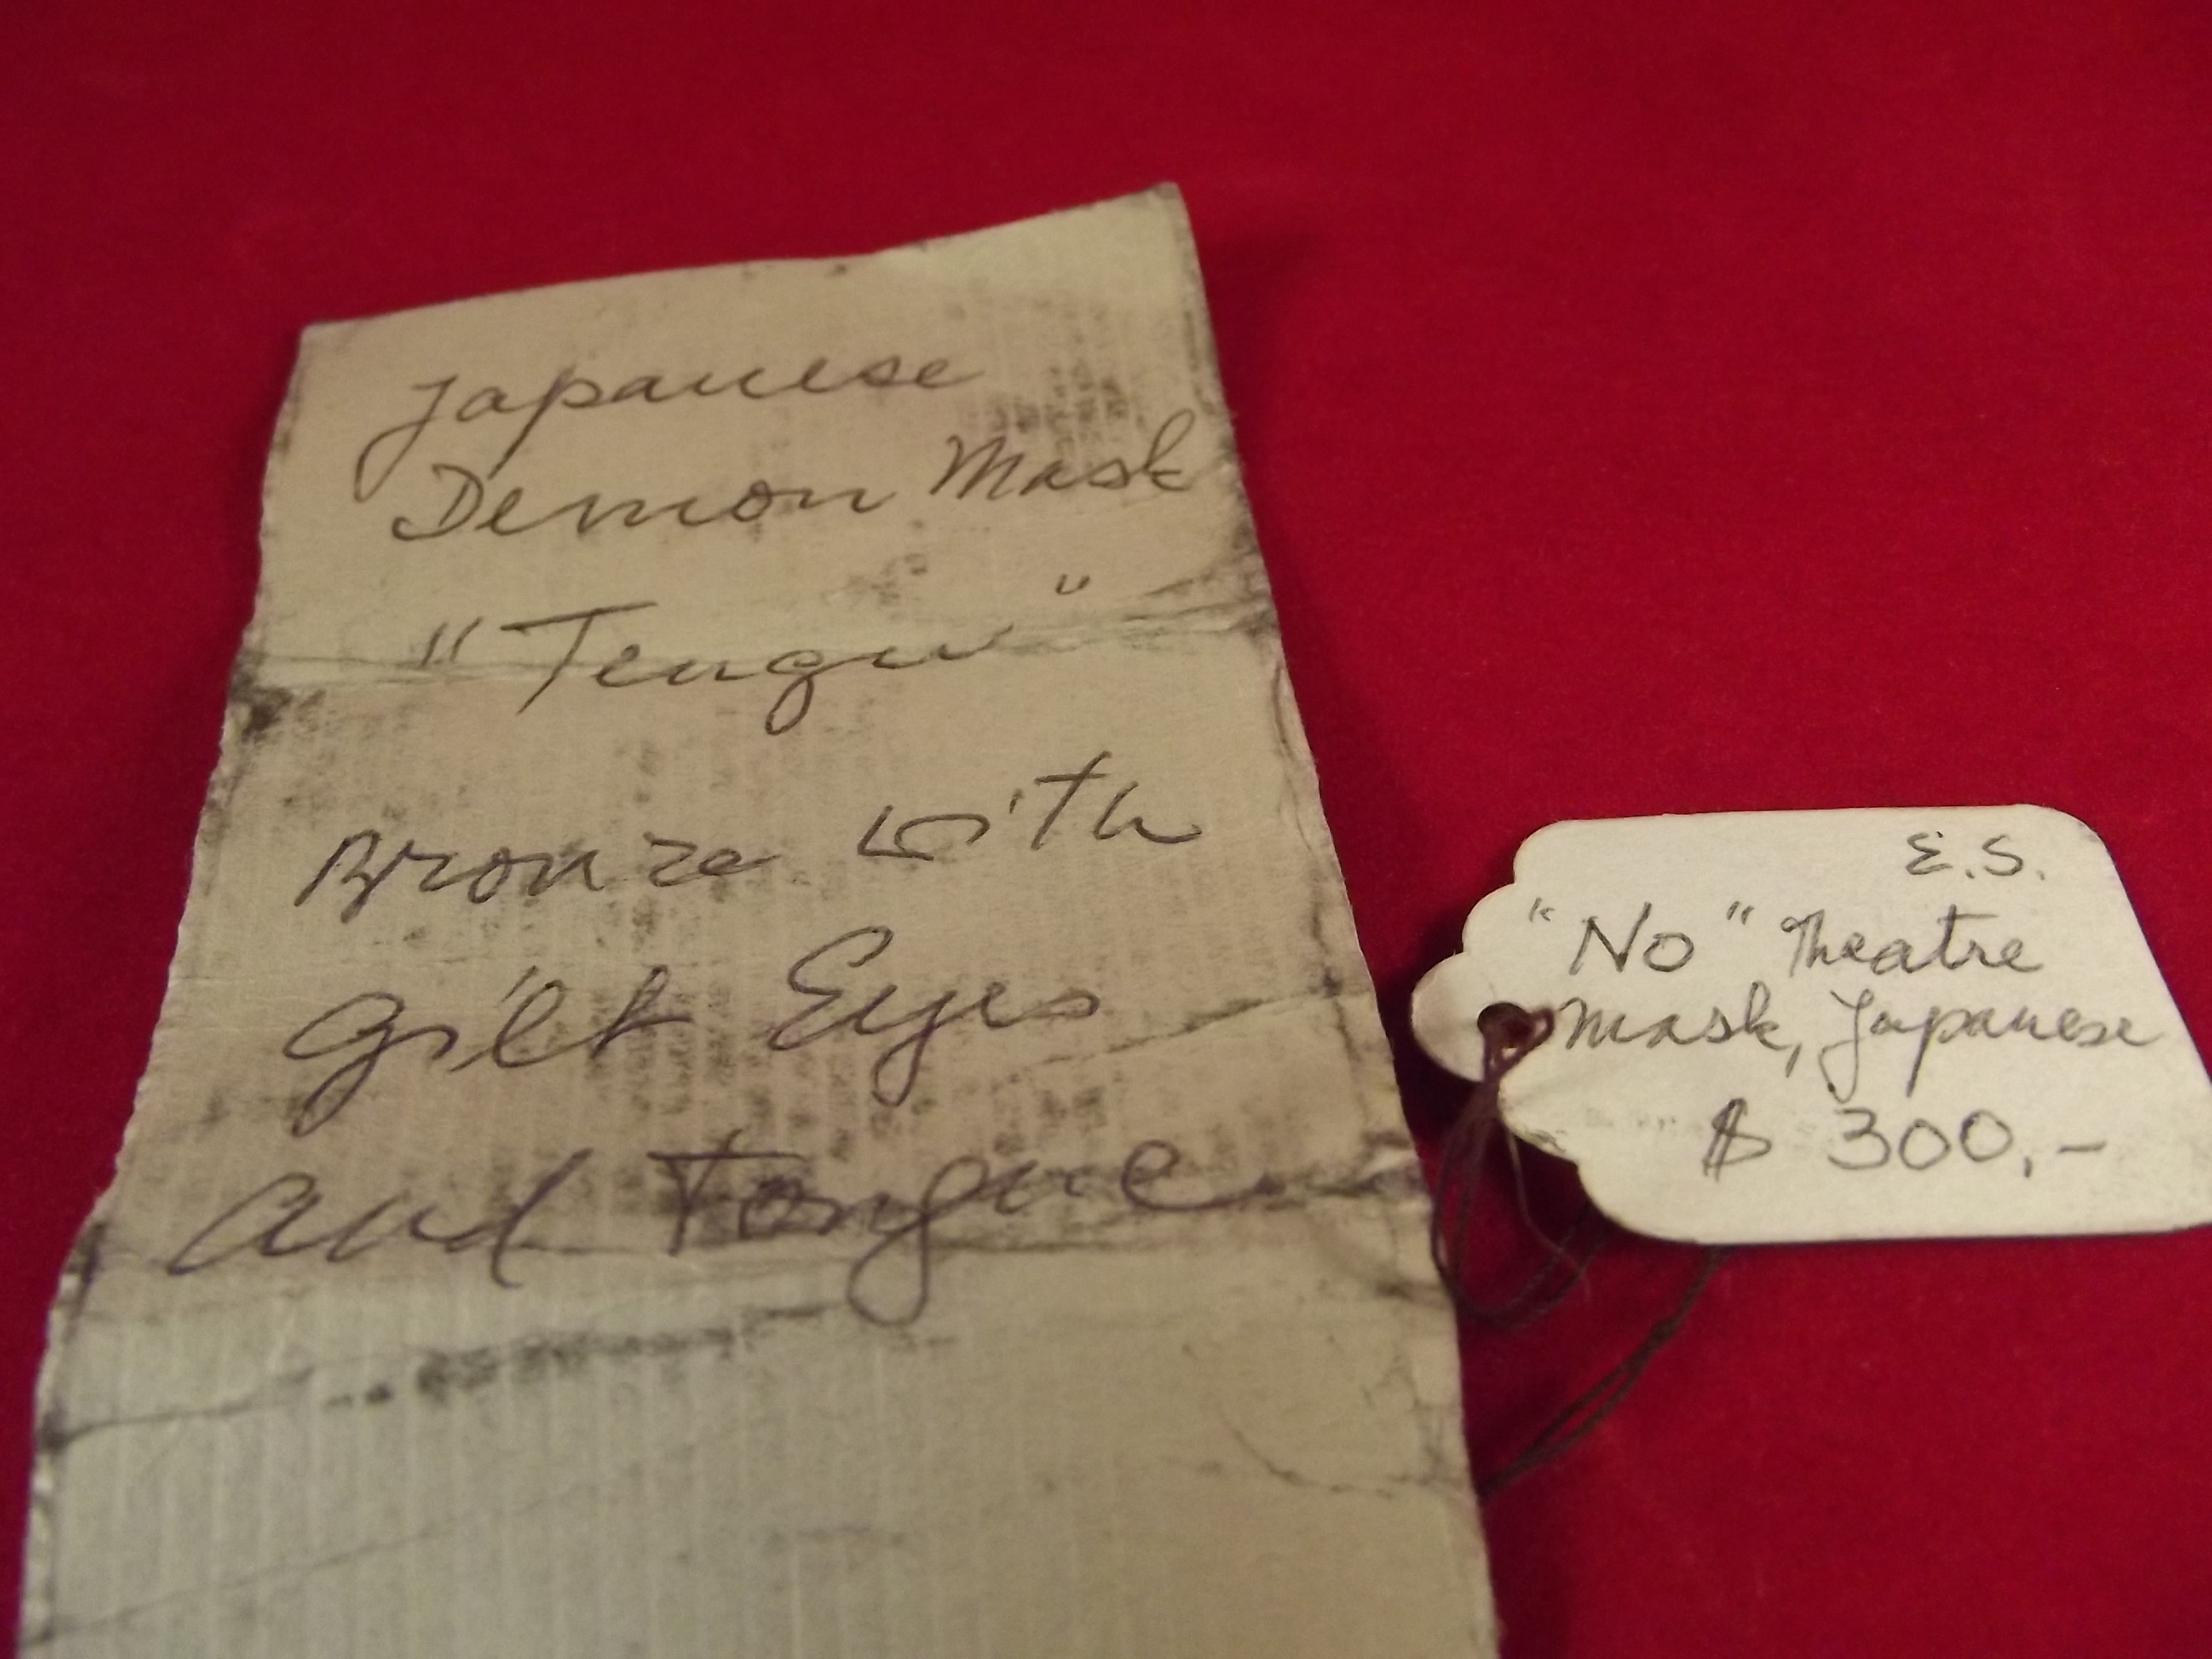 Japanese
Demon Mask
"Tengu"
Bronze with
gilt Eyes
and Tongue
E.S.
"No" Theatre
Mask, Japanese
$ 300,-